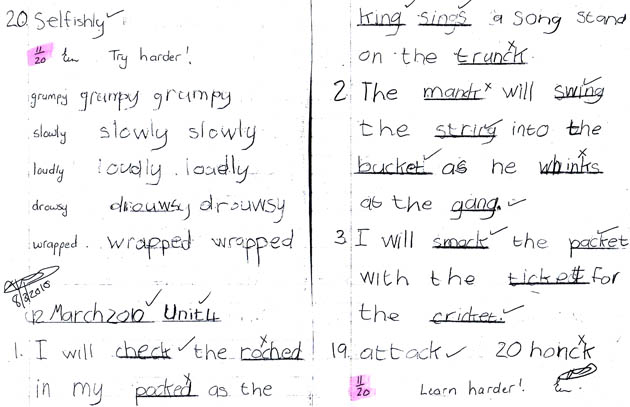 20. Selfishly
11/20 Try harder!
grumpy grumpy grumpy
slowly slowly slowly
loudly loudly loudly
drowsy drouwsy drouwsy
wrapped. wrapped wrapped
8/3/2010
12 March 2010 Unit 4
1. I will check the roched
in my pocked as the
king sings a song stand
on the trunck
2 The mandr will swing
the string into the
bucket as he whinks
at the gang.
3 I will smack the packet
with the ticket for
the cricket.
19. attack 20 honck
11/20 Learn harder!